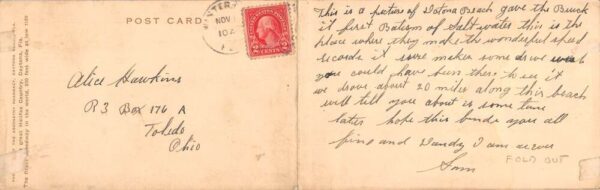 POST CARD
NOV
10 A
2 CENTS 2
Alice Hawkins
R3 Box 176 A
Toledo
Ohio
This is a picture of Datona Beach gave the Buick
it first Batism of Salt water this is the
place where they make the wonderful speed
records it sure makes some drive wish
you could have been there to see it
we drove about 20 miles along this beach
will tell you about is some time
later hope this finds you all
fine and Dandy I am as ever
Sam
FOLD OUT